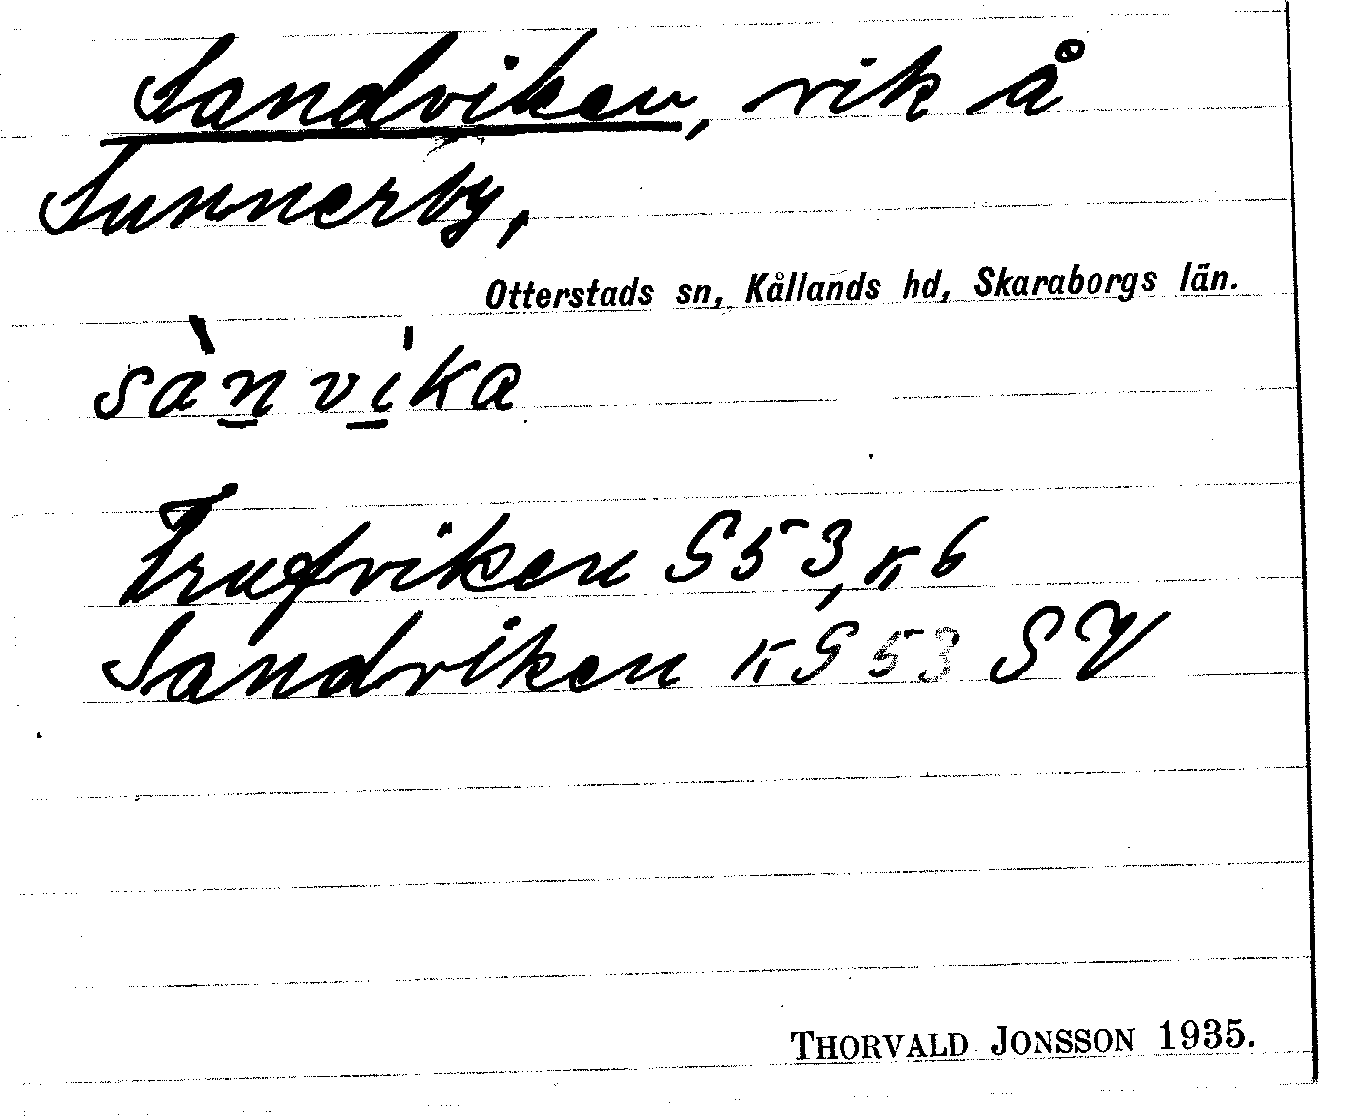 Sandviken, vik å
Sunnerby,
Otterstads sn, Kållands hd, Skaraborgs län.
sàn̲vi̲̍ka
Frugviken S53, K6
Sandviken KS53 SV
THORVALD JONSSON 1935.